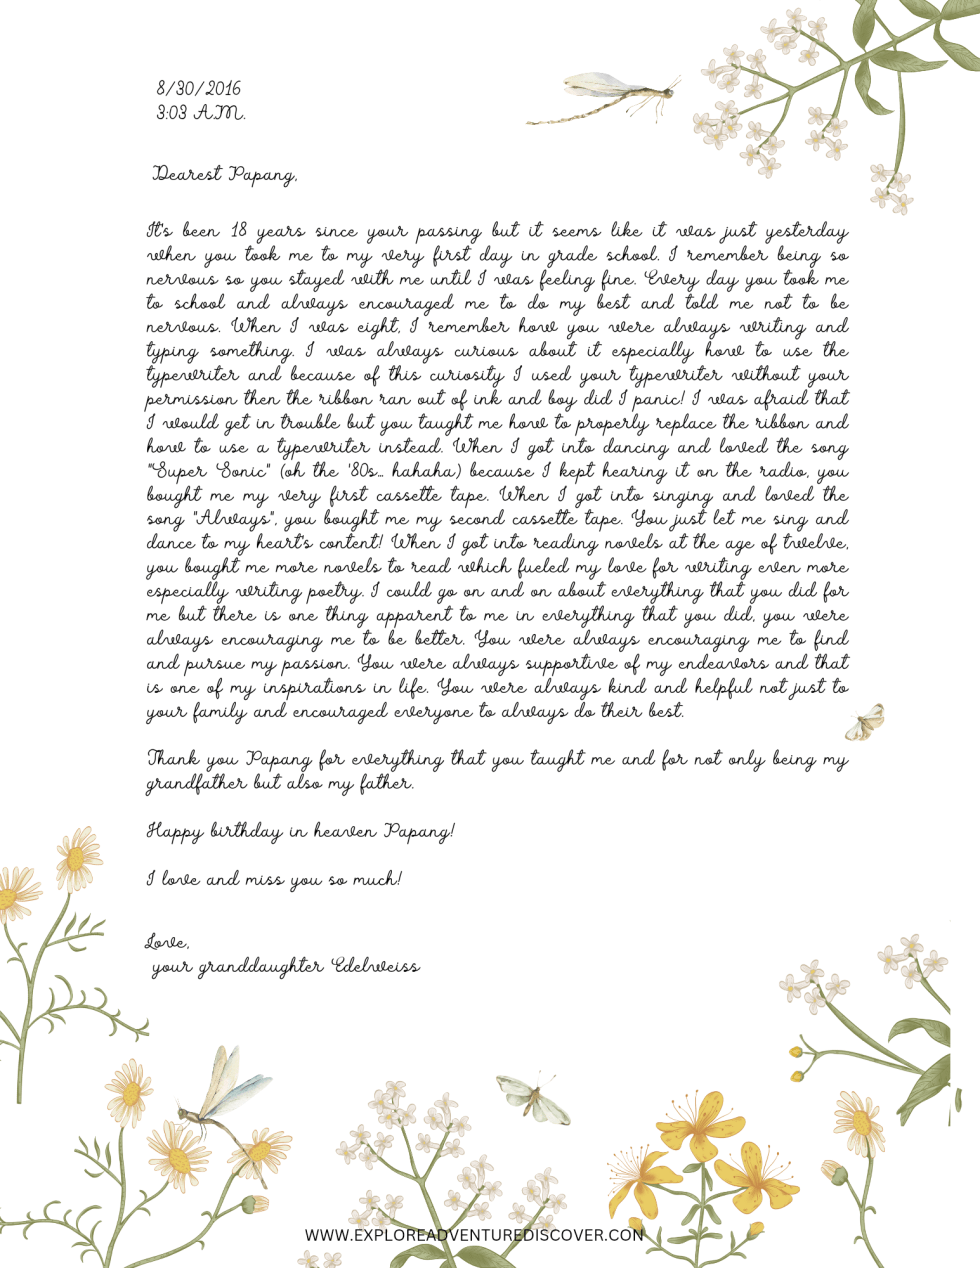 8/30/2016
3:03 A.M.
Dearest Papang,
It's been 18 years since your passing but it seems like it was just yesterday
when you took me to my very first day in grade school. I remember being so
nervous so you stayed with me until I was feeling fine. Every day you took me
to school and always encouraged me to do my best and told me not to be
nervous. When I was eight, I remember how you were always writing and
typing something. I was always curious about it especially how to use the
typewriter and because of this curiosity I used your typewriter without your
permission then the ribbon ran out of ink and boy did I panic! I was afraid that
I would get in trouble but you taught me how to properly replace the ribbon and
how to use a typewriter instead. When I got into dancing and loved the song
"Super Sonic" (oh the '80s... hahaha) because I kept hearing it on the radio, you
bought me my very first cassette tape. When I got into singing and loved the
song "Always", you bought me my second cassette tape. You just let me sing and
dance to my heart's content! When I got into reading novels at the age of twelve,
you bought me more novels to read which fueled my love for writing even more
especially writing poetry. I could go on and on about everything that you did for
me but there is one thing apparent to me in everything that you did, you were
always encouraging me to be better. You were always encouraging me to find
and pursue my passion. You were always supportive of my endeavors and that
is one of my inspirations in life. You were always kind and helpful not just to
your family and encouraged everyone to always do their best.
Thank you Papang for everything that you taught me and for not only being my
grandfather but also my father.
Happy birthday in heaven Papang!
I love and miss you so much!
Love,
your granddaughter Edelweiss
WWW.EXPLOREADVENTUREDISCOVER.COM